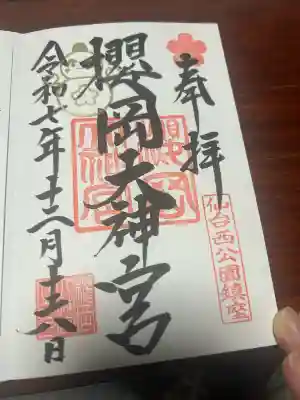 奉拝
櫻岡天神宮
仙台西公園鎮座
令和七年十二月十六日